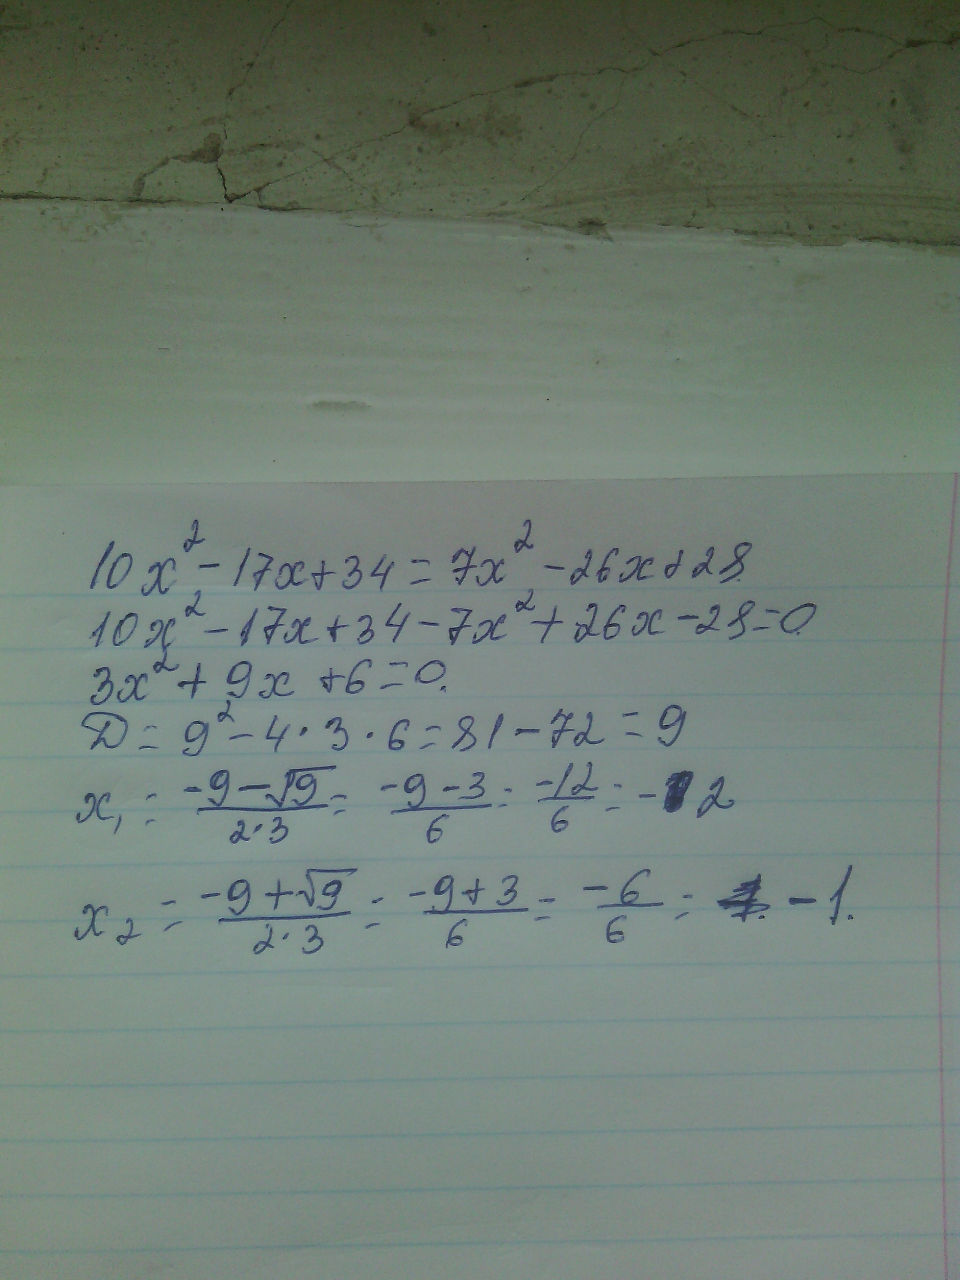 10x² - 17x + 34 = 7x² - 26x + 28
10x² - 17x + 34 - 7x² + 26x - 28 = 0.
3x² + 9x + 6 = 0.
D = 9² - 4 · 3 · 6 = 81 - 72 = 9
x₁ = (-9 - √9)/(2·3) = (-9 - 3)/6 = -12/6 = -2
x₂ = (-9 + √9)/(2·3) = (-9 + 3)/6 = -6/6 = -1.